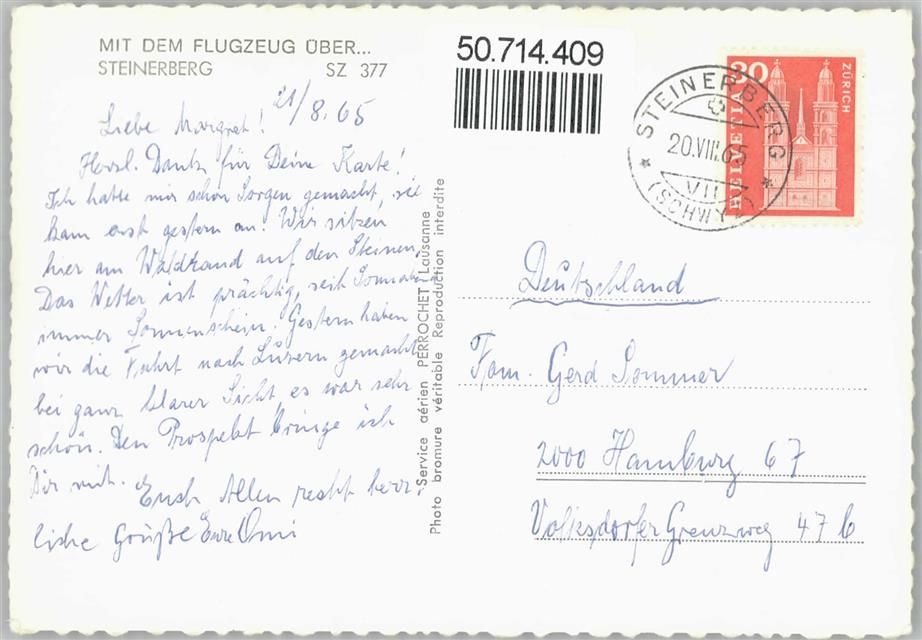 MIT DEM FLUGZEUG ÜBER...
STEINERBERG SZ 377
50.714.409
21/8.65
Liebe Margret!
Herzl. Dank für Deine Karte!
Ich hatte mir schon Sorgen gemacht, sie
kam erst gestern an! Wir sitzen
hier am Waldrand auf den Steinen.
Das Wetter ist prächtig, seit Sonnabend
immer Sonnenschein. Gestern haben
wir die Fahrt nach Luzern gemacht
bei ganz klarer Sicht, es war sehr
schön. Den Prospekt bringe ich
Dir mit. Euch Allen recht herz-
liche Grüße Eure Omi
Service aérien PERROCHET Lausanne
Photo bromure véritable Reproduction interdite
STEINERBERG
20.VIII.65
VII
(SCHWYZ)
30
HELVETIA
ZÜRICH
Deutschland
Fam. Gerd Sommer
2000 Hamburg 67
Volksdorfer Grenzweg 47 b